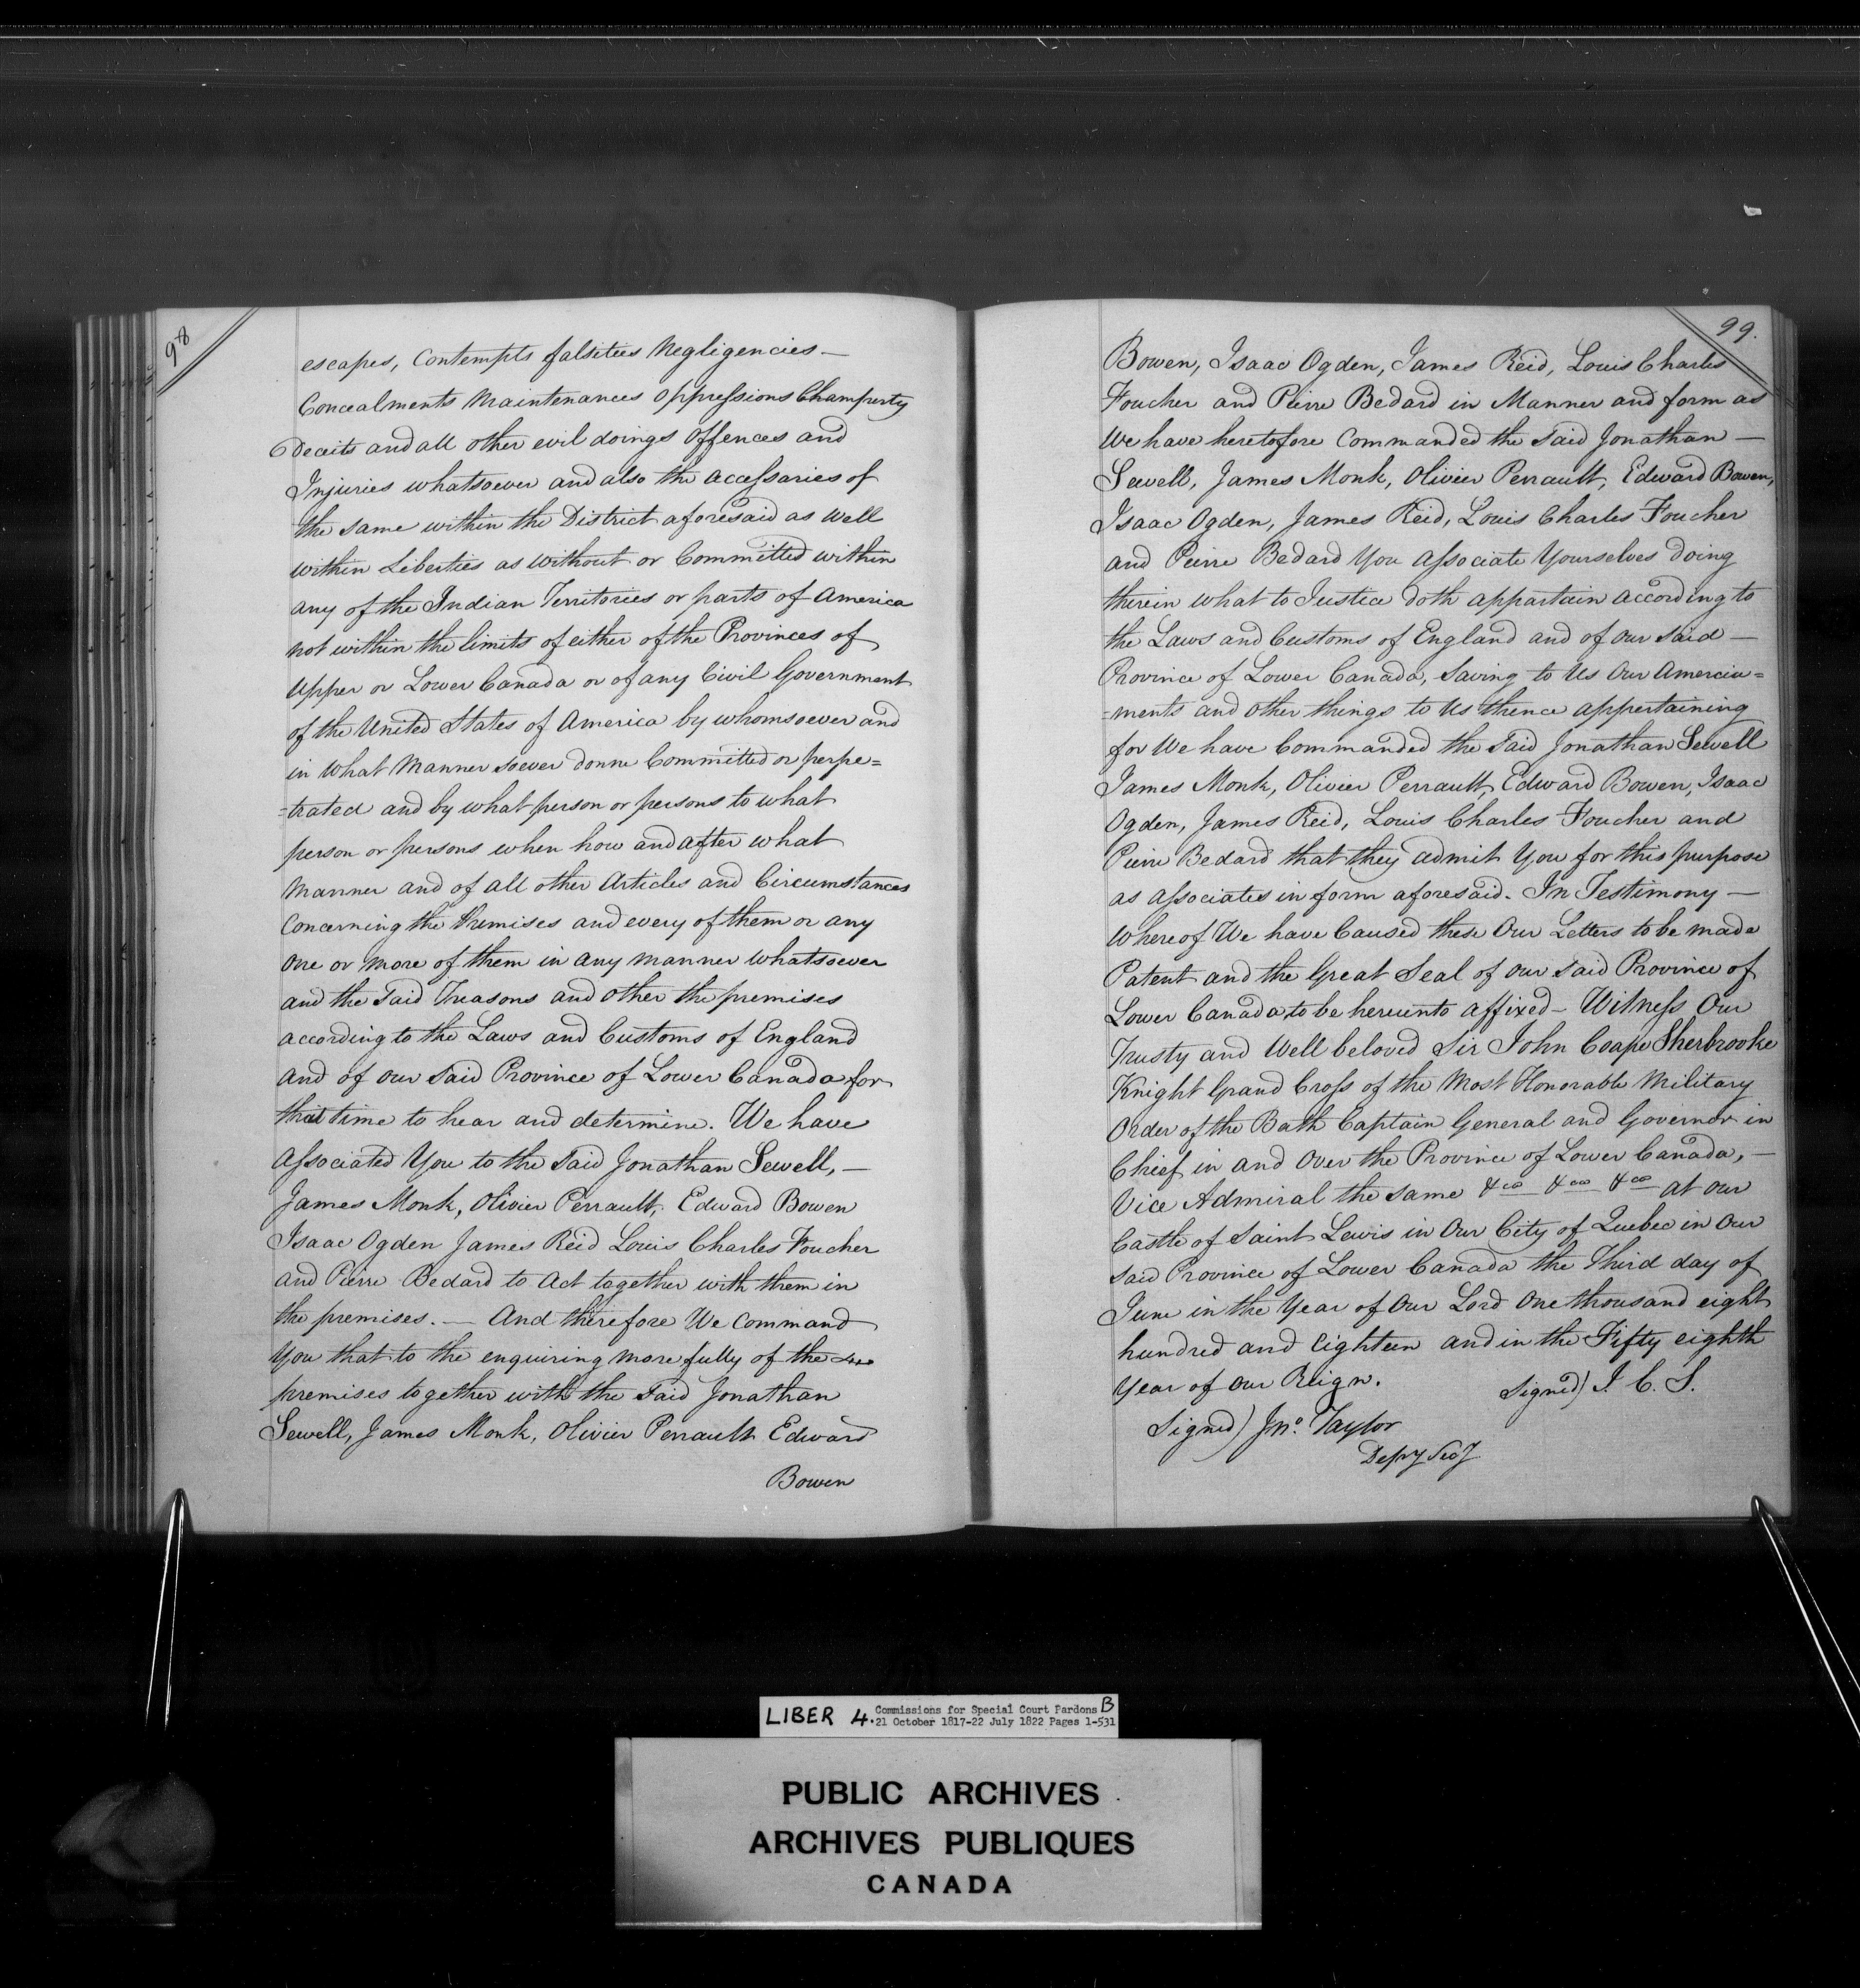 98
escapes, Contempts falsities Negligencies —
Concealments Maintenances Oppressions Champerty
Deceits and all other evil doings Offences and
Injuries whatsoever and also the accessaries of
the same within the District aforesaid as well
within Liberties as without or Committed within
any of the Indian Territories or parts of America
not within the limits of either of the Provinces of
Upper or Lower Canada or of any Civil Government
of the United States of America by whomsoever and
in what Manner soever donne Committed or perpe=
=trated and by what person or persons to what
person or persons when how and after what
Manner and of all other Articles and Circumstances
Concerning the Premises and every of them or any
One or More of them in any manner whatsoever
and the said Treasons and other the premises
according to the Laws and Customs of England
and of our said Province of Lower Canada for
that time to hear and determine. We have
Associated You to the said Jonathan Sewell, —
James Monk, Olivier Perrault, Edward Bowen
Isaac Ogden James Reid Louis Charles Foucher
and Pierre Bedard to Act together with them in
the premises. — And therefore We Command
You that to the enquiring more fully of the
premises together with the said Jonathan
Sewell, James Monk, Olivier Perrault Edward
Bowen
99.
Bowen, Isaac Ogden, James Reid, Louis Charles
Foucher and Pierre Bedard in Manner and form as
We have heretofore Commanded the said Jonathan —
Sewell, James Monk, Olivier Perrault, Edward Bowen,
Isaac Ogden, James Reid, Louis Charles Foucher
and Pierre Bedard You Associate Yourselves doing
therein what to Justice doth appartain according to
the Laws and Customs of England and of our said —
Province of Lower Canada, saving to Us Our Amercia=
=ments and other things to Us thence appertaining
for We have Commanded the said Jonathan Sewell
James Monk, Olivier Perrault, Edward Bowen, Isaac
Ogden, James Reid, Louis Charles Foucher and
Pierre Bedard that they admit You for this purpose
as associates in form aforesaid. In Testimony —
Whereof We have Caused these Our Letters to be made
Patent and the Great Seal of our said Province of
Lower Canada to be hereunto affixed — Witness Our
Trusty and Well beloved Sir John Coape Sherbrooke
Knight Grand Cross of the Most Honorable Military
Order of the Bath Captain General and Governor in
Chief in and Over the Province of Lower Canada, —
Vice Admiral the same &ca &ca &ca at our
Castle of Saint Lewis in Our City of Quebec in Our
said Province of Lower Canada the Third day of
June in the Year of Our Lord One thousand eight
hundred and Eighteen and in the Fifty eighth
Year of our Reign. Signed) J. C. S.
Signed) Jno. Taylor
Depy Secy
LIBER 4. Commissions for Special Court Pardons B
21 October 1817-22 July 1822 Pages 1-531
PUBLIC ARCHIVES
ARCHIVES PUBLIQUES
CANADA